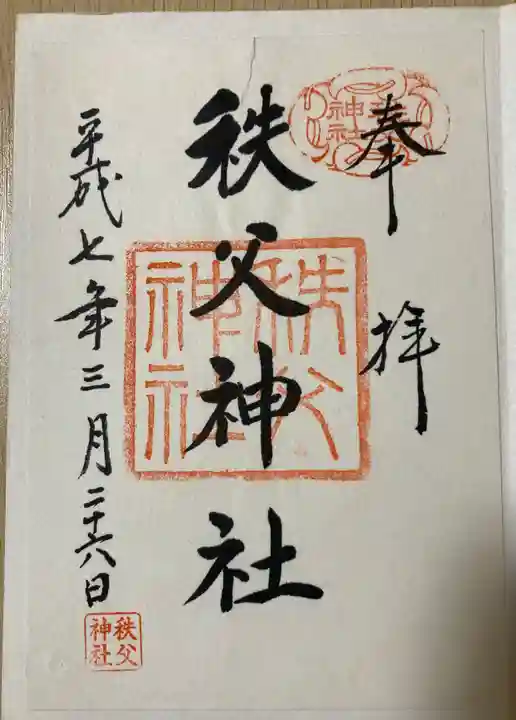 奉拝
秩父神社
秩父神社
平成七年三月二十六日
秩父神社